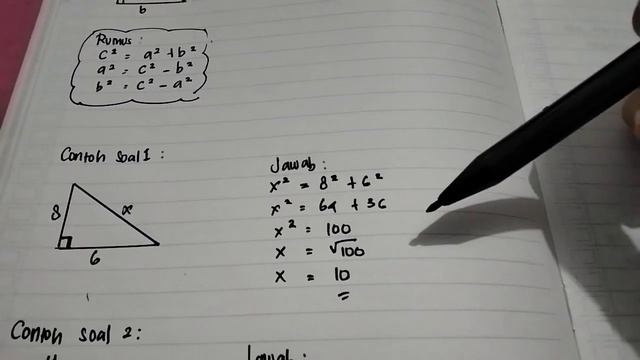 b
Rumus :
c² = a² + b²
a² = c² - b²
b² = c² - a²
Contoh Soal 1 :
8
x
6
Jawab :
x² = 8² + 6²
x² = 64 + 36
x² = 100
x = √100
x = 10
Contoh Soal 2 :
Jawab :